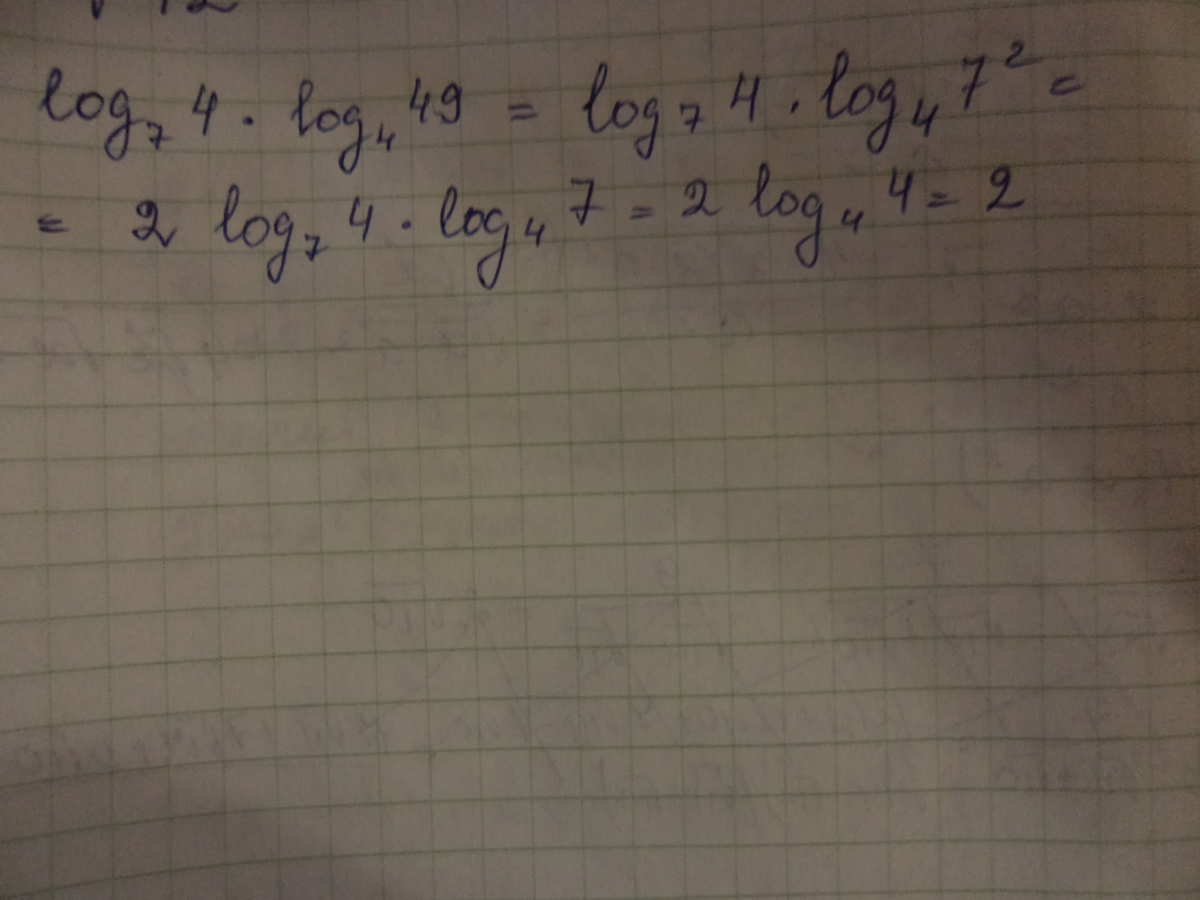 log₇ 4 · log₄ 49 = log₇ 4 · log₄ 7² =
= 2 log₇ 4 · log₄ 7 = 2 log₄ 4 = 2